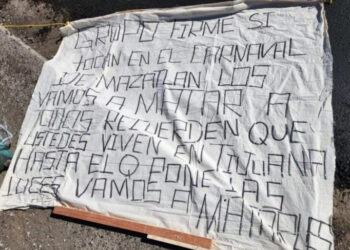 GRUPO FIRME SI
TOCAN EN EL CARNAVAL
DE MAZATLAN LOS
VAMOS A MATAR A
TODOS RECUERDEN QUE
USTEDES VIVEN EN TIJUANA
HASTA EL
VAMOS A